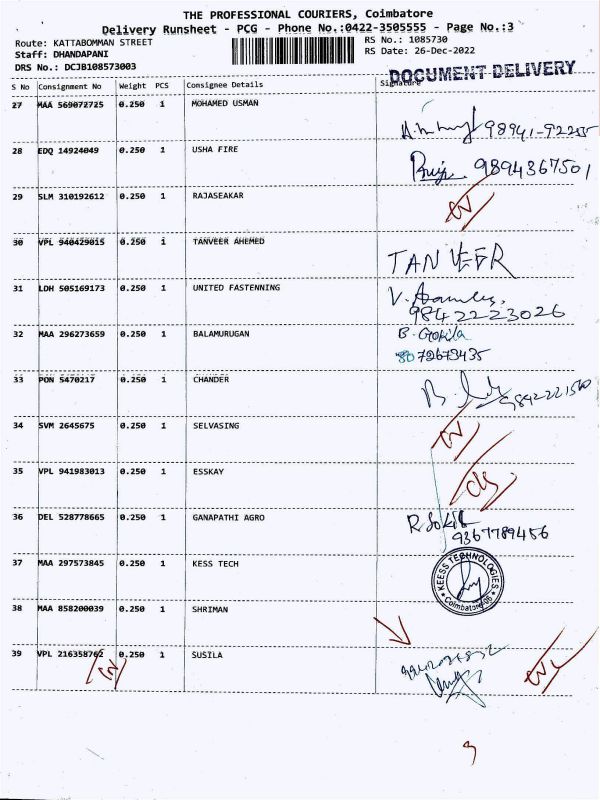 THE PROFESSIONAL COURIERS, Coimbatore
Delivery Runsheet - PCG - Phone No.:0422-3505555 - Page No.:3
Route: KATTABOMMAN STREET
RS No.: 1085730
Staff: DHANDAPANI
RS Date: 26-Dec-2022
DRS No.: DCJB108573003
DOCUMENT DELIVERY
S No Consignment No Weight PCS Consignee Details Signature
27 MAA 569072725 0.250 1 MOHAMED USMAN
98941-92255
28 EDQ 14924049 0.250 1 USHA FIRE
9894367501
29 SLM 310192612 0.250 1 RAJASEAKAR
30 VPL 940429015 0.250 1 TANVEER AHEMED
TANVEER
31 LDH 505169173 0.250 1 UNITED FASTENNING
9842223026
32 MAA 296273659 0.250 1 BALAMURUGAN
B. Gokila
8072673435
33 PON 5470217 0.250 1 CHANDER
34 SVM 2645675 0.250 1 SELVASING
35 VPL 941983013 0.250 1 ESSKAY
36 DEL 528778665 0.250 1 GANAPATHI AGRO
9367789456
37 MAA 297573845 0.250 1 KESS TECH
KEESS TECHNOLOGIES
Coimbatore
38 MAA 858200039 0.250 1 SHRIMAN
39 VPL 216358762 0.250 1 SUSILA